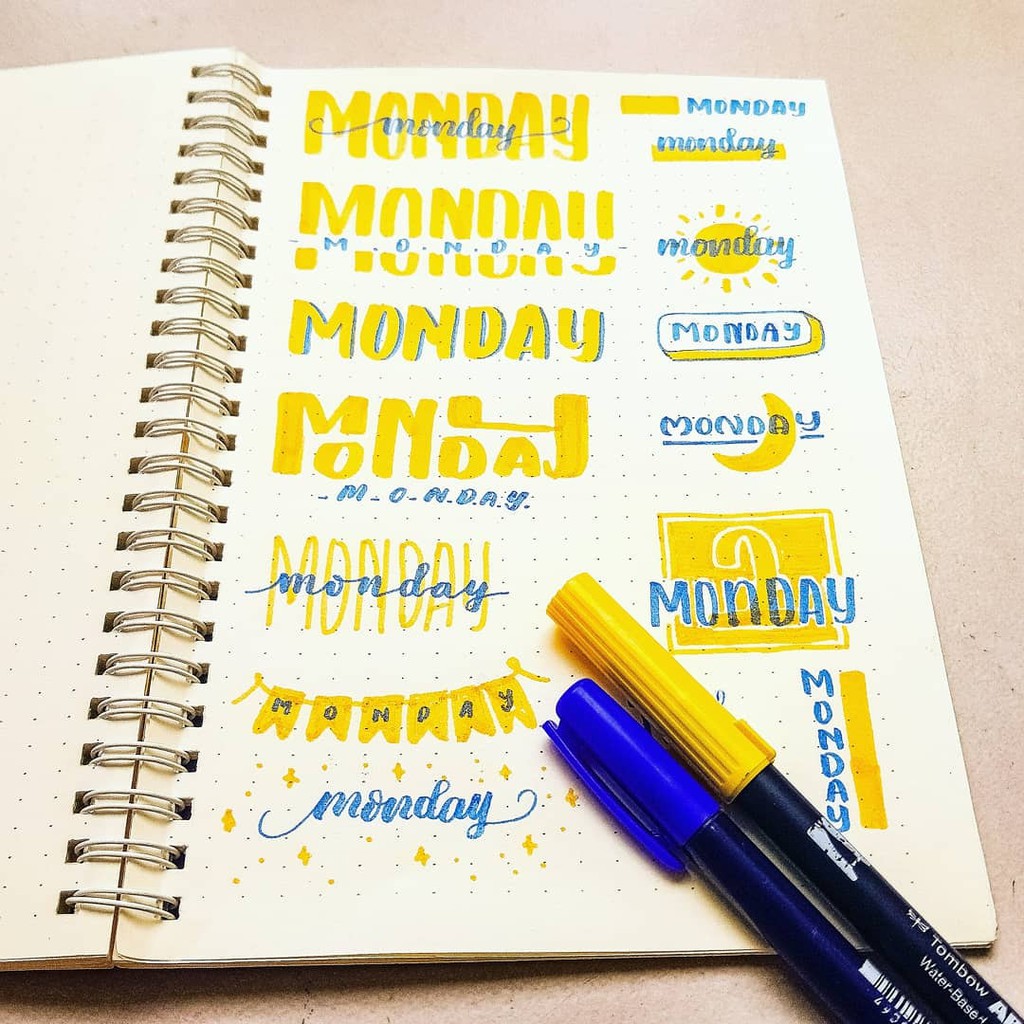 MONDAY
monday
MONDAY
M.O.N.D.A.Y
MONDAY
MONDAY
-M-O-N.D.A.Y.
MONDAY
monday
MONDAY
monday
MONDAY
monday
monday
MONDAY
MONDAY
2
MONDAY
MONDAY
Tombow
Water-Based